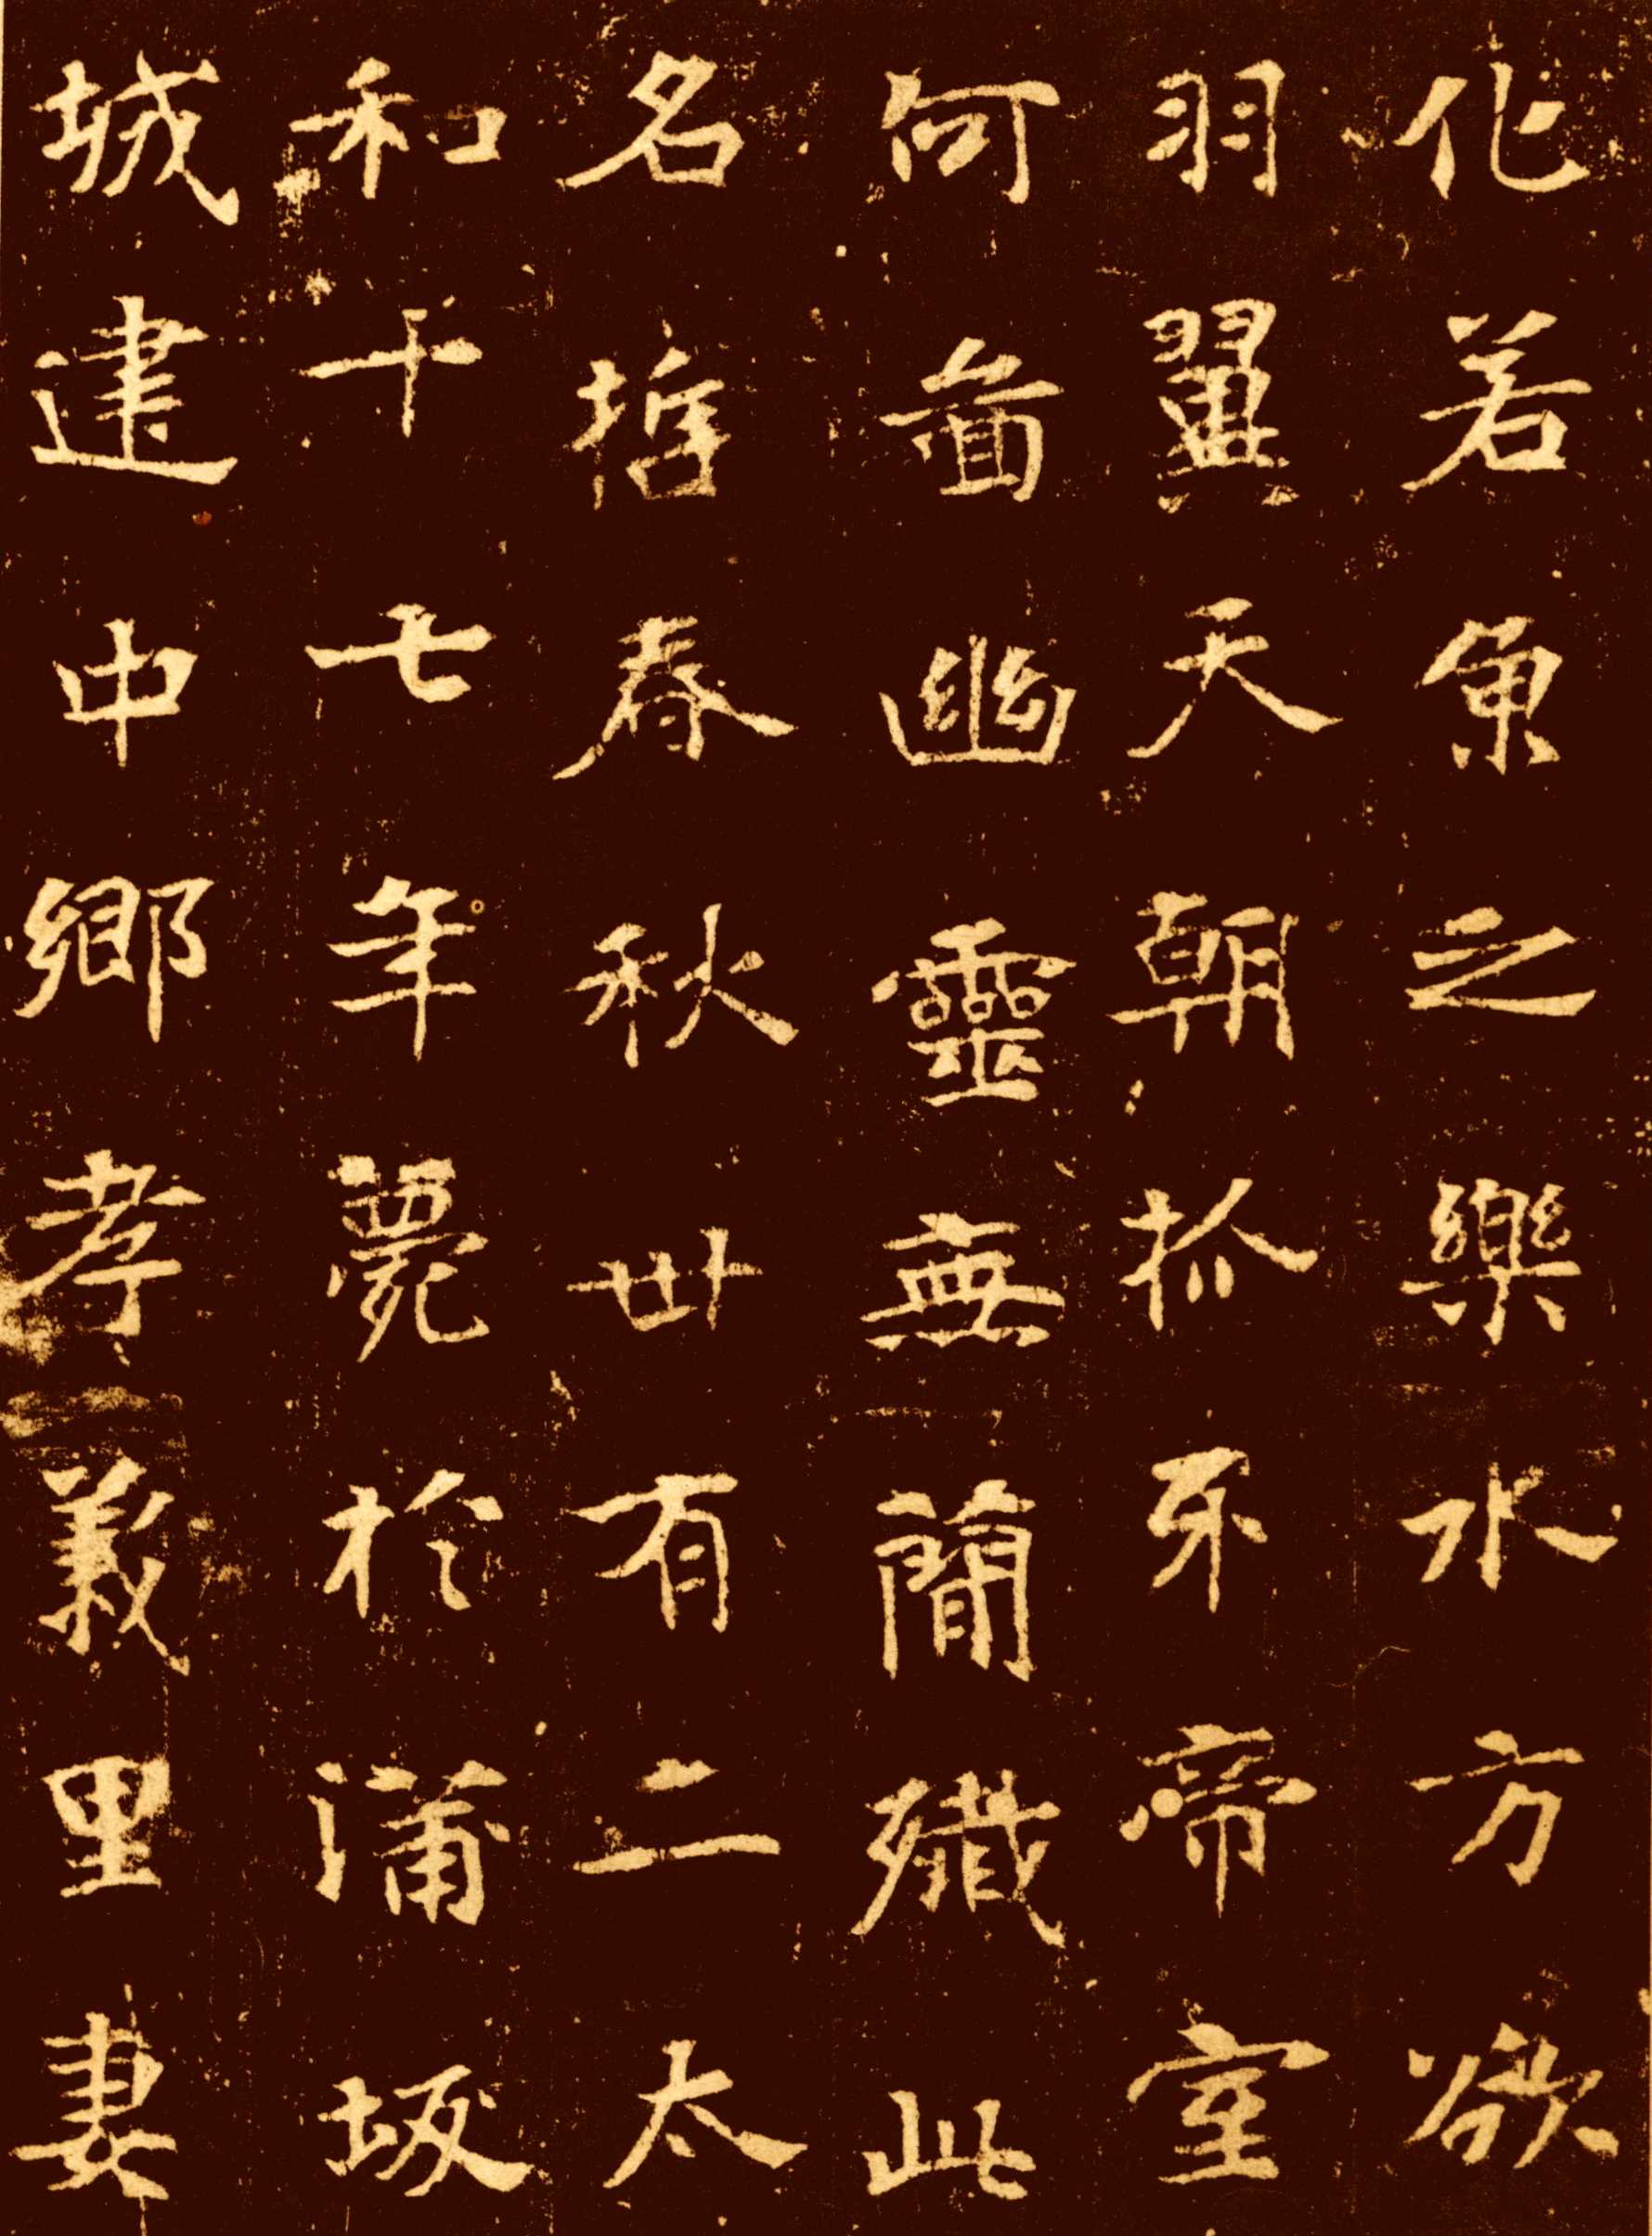 化若魚之樂水方欲
羽翼天朝抓牙帝室
何啚幽靈無簡殲此
名哲春秋卅有二太
和十七年薨於蒲坂
城建中鄉孝義里妻